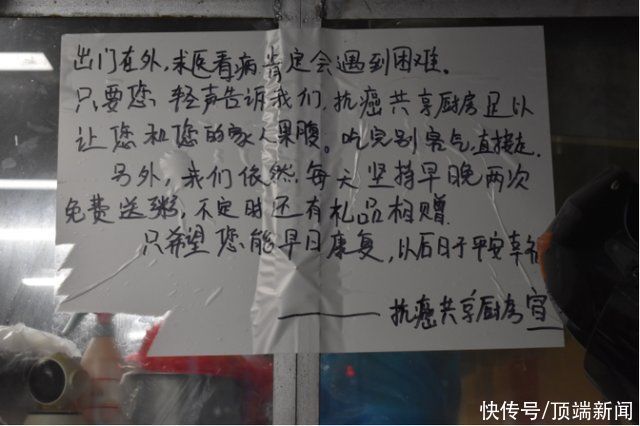 出门在外,求医看病肯定会遇到困难。
只要您轻声告诉我们,抗癌共享厨房足以
让您和您的家人果腹。吃完别客气,直接走.
另外,我们依然每天坚持早晚两次
免费送粥,不定时还有礼品相赠.
只希望您能早日康复,以后日子平安幸福
——抗癌共享厨房宣
快传号/顶端新闻